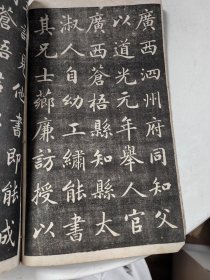 廣西泗州府同知父
以道光元年舉人官
廣西蒼梧縣知縣太
淑人自幼工繡能書
其兄士薌廉訪授以
書即能成